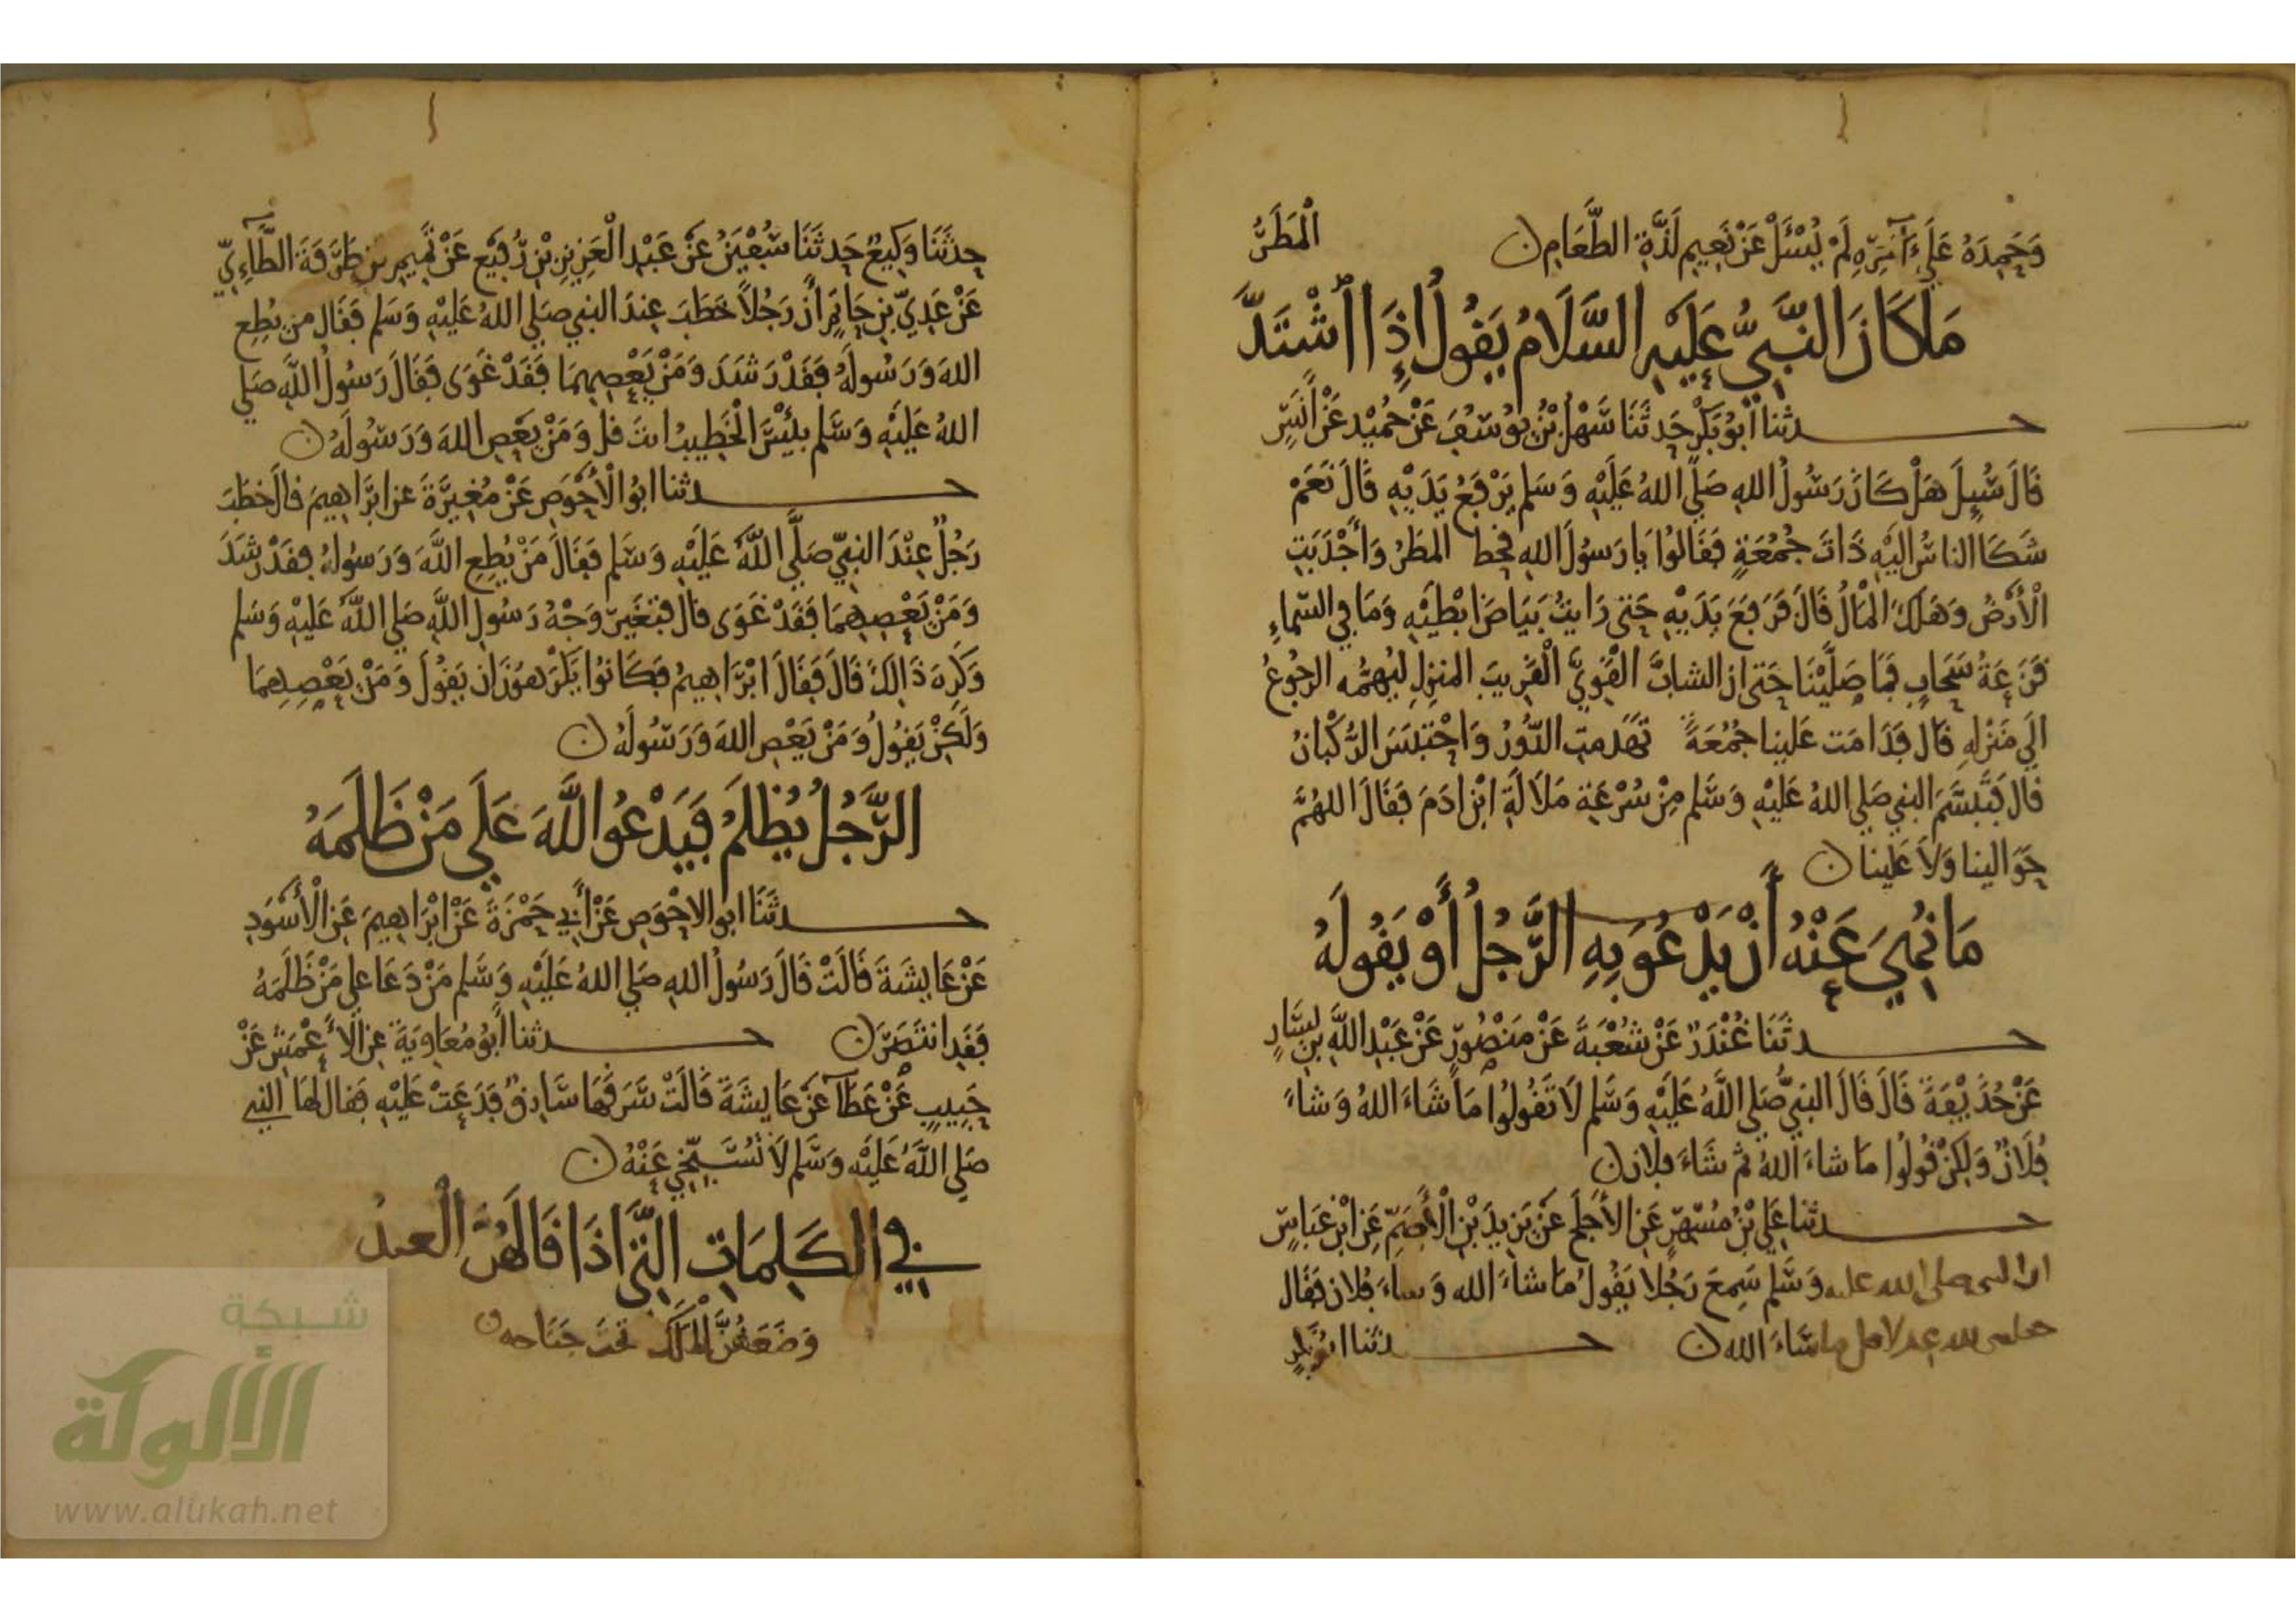 وَحَمِدَهُ عَلَى آخِرِهِ لَمْ يُسْئَلْ عَنْ نَعِيمِ لَذَّةِ الطَّعَامِ ن
الْمَطَرُ
مَا كَانَ النَّبِيُّ عَلَيْهِ السَّلَامُ يَقُولُ إِذَا اشْتَدَّ
حـدثنا أَبُو بَكْرٍ حَدثَنَا سَهْلُ بْنُ يُوسُفَ عَنْ حُمَيْدٍ عَنْ أَنَسٍ
قَالَ سُيِلَ هَلْ كَانَ رَسُولُ اللهِ صَلَّى اللهُ عَلَيْهِ وَسَلم يَرْفَعُ يَدَيْهِ قَالَ نَعَمْ
شَكَا الناسُ اليْهِ ذَاتَ جُمُعَةٍ فَقَالُوا يَا رَسُولَ اللهِ قحِط المَطَرُ وَأَجْدَبَتِ
الْأَرْضُ وَهَلَكَ الْمَالُ قَالَ فَرَفَعَ يَدَيْهِ حَتى رَايتُ بَيَاضَ ابْطَيْهِ وَمَا فِي السَّمَاءِ
قَزَعَةُ سَحَابٍ فَمَا صَلَّيْنَا حَتى ان الشابَّ الْقَوِيَّ الْقَرِيبَ المنزِلِ لَيُهِمُّه الرجُوعُ
الَى مَنْزِلِهِ قال فَدَامَت عَلينا جُمُعَةً تَهَدمَتِ الدُّورُ وَاحْتبَسَ الرُّكْبَانُ
قال فَتَبَسَّمَ النبي صَلى اللهُ عَلَيْهِ وَسَّلم مِنْ سُرْعَةِ مَلَالَةِ ابْنِ ادَمَ فَقَالَ اللهُمَّ
حَوَالينا وَلَا عَلَينا ن
مَا نُهِيَ عَنْهُ أَنْ يَدْعُوَ بِهِ الرَّجُلُ أَوْ يَقُولَهُ
حـدثَنَا غُنْدَرٌ عَنْ شُعْبَةَ عَنْ مَنْصُورٍ عَنْ عَبْدِ اللَّهِ بن يسَارٍ
عَنْ حُذَيْفَةَ قَالَ قَالَ النبِيُّ صَلى اللَّهُ عَلَيْهِ وَسَّلم لَا تَقُولُوا مَا شَاءَ اللهُ وَشاءَ
فُلَانٌ وَلَكِنْ قُولُوا مَا شاءَ اللهُ ثم شَاءَ فلان ن
حـدثنا عَلِي بْنُ مُسْهِرٍ عَنِ الأَجْلَحِ عَنْ يَزِيدَ بْنِ الْأَصَمِّ عَنِ ابْنِ عَبَاسٍ
ان النبي صلى الله عليه وَسَّلم سَمِعَ رَجُلا يَقُولُ مَا شاءَ الله وَشاءَ فُلان فَقَال
لا قل ما شَاءَ الله ن حـدثنا ابُو بَكْرٍ
حدثَنَا وَكِيعٌ حَدثَنَا سُفْيَنُ عَنْ عَبْدِ الْعَزِيزِ بْنِ رُفَيْعٍ عَنْ تَمِيمِ بنِ طَرَفَةَ الطَّاءِيِّ
عَنْ عَدِيِّ بنِ حَاتِمٍ أَنَّ رَجُلاً خَطَبَ عِندَ النبي صَلى اللهُ عَلَيْهِ وَسَلم فَقَال من يُطِعِ
اللهَ وَرَسُولَهُ فَقَدْ رَشَدَ وَمَنْ يَعْصِهِمَا فَقَدْ غَوَى فَقَالَ رَسُولُ اللَّهِ صَلى
اللهُ عَلَيْهِ وَسَّلم بِئْسَ الْخَطِيبُ انتَ قل وَمَنْ يَعْصِ اللهَ وَرَسُولَهُ ن
حـدثنا ابُو الْأَحْوَصِ عَنْ مُغِيرَةَ عن ابْرَاهِيمَ قال خَطَبَ
رَجُلٌ عِنْدَ النبِيِّ صَلَّى اللَّهُ عَلَيْهِ وَسَلم فَقَالَ مَنْ يُطِعِ اللَّهَ وَرَسُولَهُ فقَدْ رَشَدَ
وَمَنْ يَعْصِهِمَا فَقَدْ غَوَى قال فتغَيَّرَ وَجْهُ رَسُولِ اللَّهِ صَلى اللَّهُ عَلَيْهِ وَسَلم
وَكَرِهَ ذَالِكَ قَالَ فَقَالَ ابْرَاهِيمُ فَكَانُوا يَكْرَهُونَ ان يَقُولَ وَمَنْ يَعْصِهِمَا
وَلَكِنْ يَقُولُ وَمَنْ يَعْصِ اللهَ وَرَسُولَهُ ن
الرَّجُلُ يُظْلَمُ فَيَدْعُو اللَّهَ عَلَى مَنْ ظَلَمَهُ
حـدثَنَا ابو الاحْوَصِ عَنْ أَبِي حَمْزَةَ عَنْ ابْرَاهِيمَ عَنِ الْأَسْوَدِ
عَنْ عَايِشَةَ قَالَتْ قَالَ رَسُولُ اللهِ صَلى اللهُ عَلَيْهِ وَسَّلم مَنْ دَعَا عَلى مَنْ ظَلَمَهُ
فَقَدِ انتَصَرَ ن حـدثنا أَبُو مُعَاوِيَةَ عن الأَعْمَشِ عَنْ
حَبِيبٍ عَنْ عَطَآ عَنْ عَايِشَةَ قَالَتْ سَرَقَهَا سَارِقٌ فَدَعَتْ عَلَيْهِ فَقال لهَا النبي
صَلى اللَّهُ عَلَيْهِ وَسَّلم لَا تُسَبِّخِي عَنْهُ ن
فِي الْكَلِمَاتِ الَّتِي اذَا قَالَهُنَّ الْعبدُ
وَضَعَهُنَّ المَلَكُ تحتَ جَنَاحه ن
شبكة
الألوكة
www.alukah.net